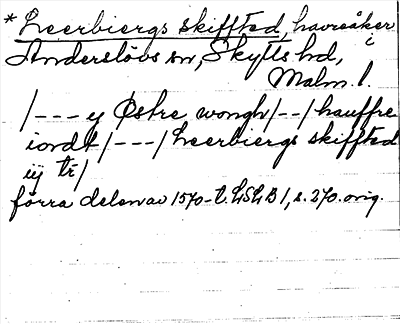 * Leerbiergs skiffted, havreåker i
Anderslövs sn, Skytts hd,
Malm. l.
/ - - - y Østre wongh / - - / hauffre
iordt / - - - / Leerbiergs skiffted
iij tr /
förra delen av 1570-t. LSLB 1, s. 270. orig.